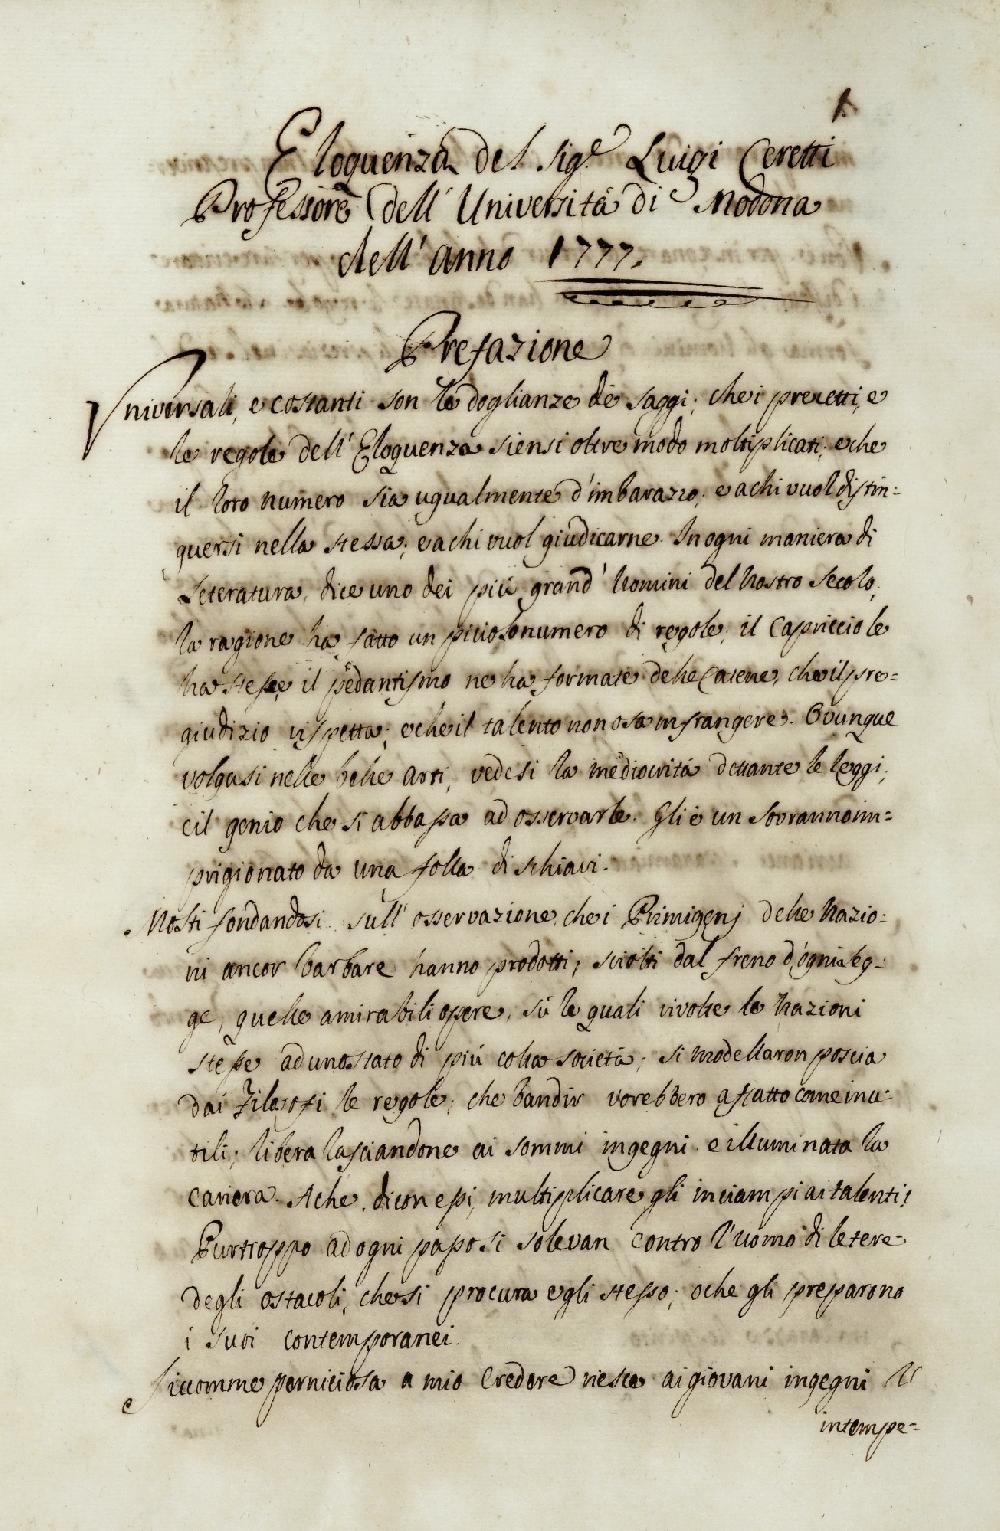 1.
Eloquenza del Sig.e Luigi Ceretti
Professore dell' Università di Modona
dell' anno 1777.
Prefazione
Universali, e costanti son le doglianze de saggi; che i precetti, e
le regole dell' Eloquenza siensi oltre modo moltiplicati; e che
il loro numero sia ugualmente d'imbarazzo; e a chi vuol distin=
guersi nella stessa; e a chi vuol giudicarne. In ogni maniera di
Leteratura, dice uno dei più grand' Uomini del nostro Secolo,
la ragione ha fatto un piciolo numero di regole, il Capriccio le
ha stese, e il pedantismo ne ha formate delle Catene, che il pre=
giudizio rispetta; e che il talento non osa infrangere. Ovunque
volgasi nelle belle arti, vedesi la mediocrità dettante le leggi,
e il genio che si abbassa ad osservarle. Gli è un Sovrano im=
prigionato da una folla di schiavi.
Mosti fondandosi sull' osservazione, che i Primigenj delle Nazio=
ni ancor barbare hanno prodotti, sciolti dal freno d'ogni leg=
ge, quelle amirabili opere, sù le quali rivolte le Nazioni
stesse ad uno stato di più colta società; si modellaron poscia
dai Filosofi le regole; che bandir vorebbero affatto come inu=
tili; libera lasciandone ai sommi ingegni e illuminata la
Cariera. A che, dicon essi, multiplicare gli inciampi ai talenti?
Purtroppo ad ogni passo si solevan contro l'uomo di letere
degli ostacoli, che si procura egli stesso; o che gli preparono
i suoi contemporanei.
Siccomme perniciosa a mio Credere riesce ai giovani ingegni l'
intempe=